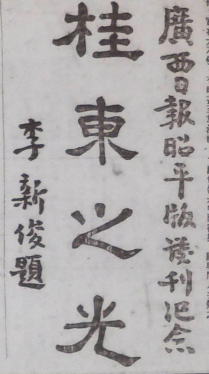 廣西日報昭平版發刊紀念
桂東之光
李新俊題